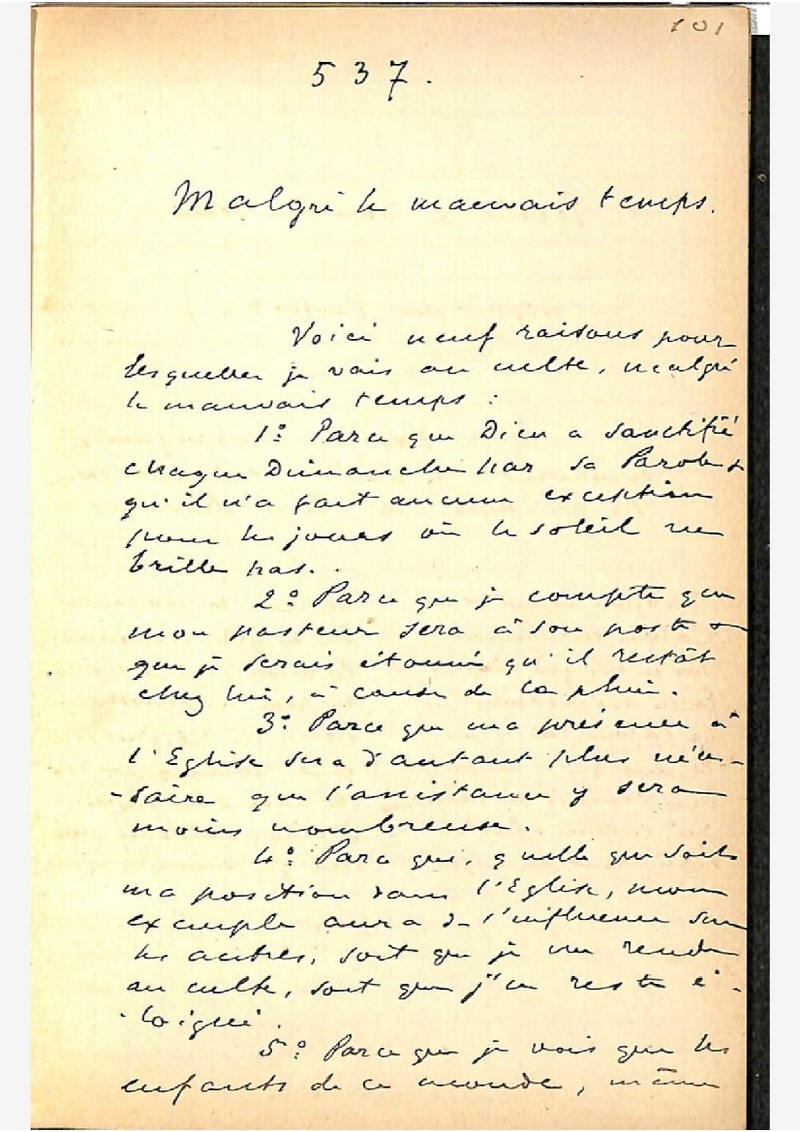 101
537.
Malgré le mauvais temps.
Voici neuf raisons pour
lesquelles je vais au culte, malgré
le mauvais temps :
1º Parce que Dieu a sanctifié
chaque Dimanche par sa Parole &
qu'il n'a fait aucune exception
pour les jours où le soleil ne
brille pas.
2º Parce que je compte que
mon pasteur sera à son poste &
que je serais étonné qu'il restât
chez lui, à cause de la pluie.
3º Parce que ma présence à
l'Eglise sera d'autant plus néces-
-saire que l'assistance y sera
moins nombreuse.
4º Parce que, quelle que soit
ma position dans l'Eglise, mon
exemple aura de l'influence sur
les autres, soit que je me rende
au culte, soit que j'en reste é-
-loigné.
5º Parce que je vois que les
enfants de ce monde, même